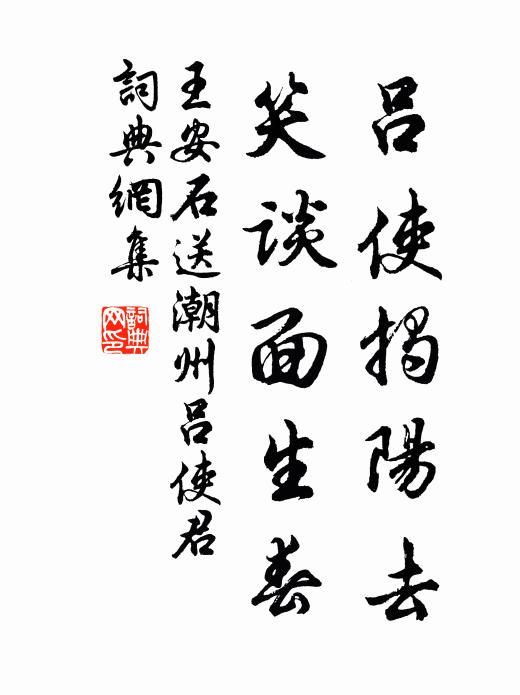 呂使揭陽去
笑談面生春
王安石送潮州呂使君
詞典網集
詞典网印